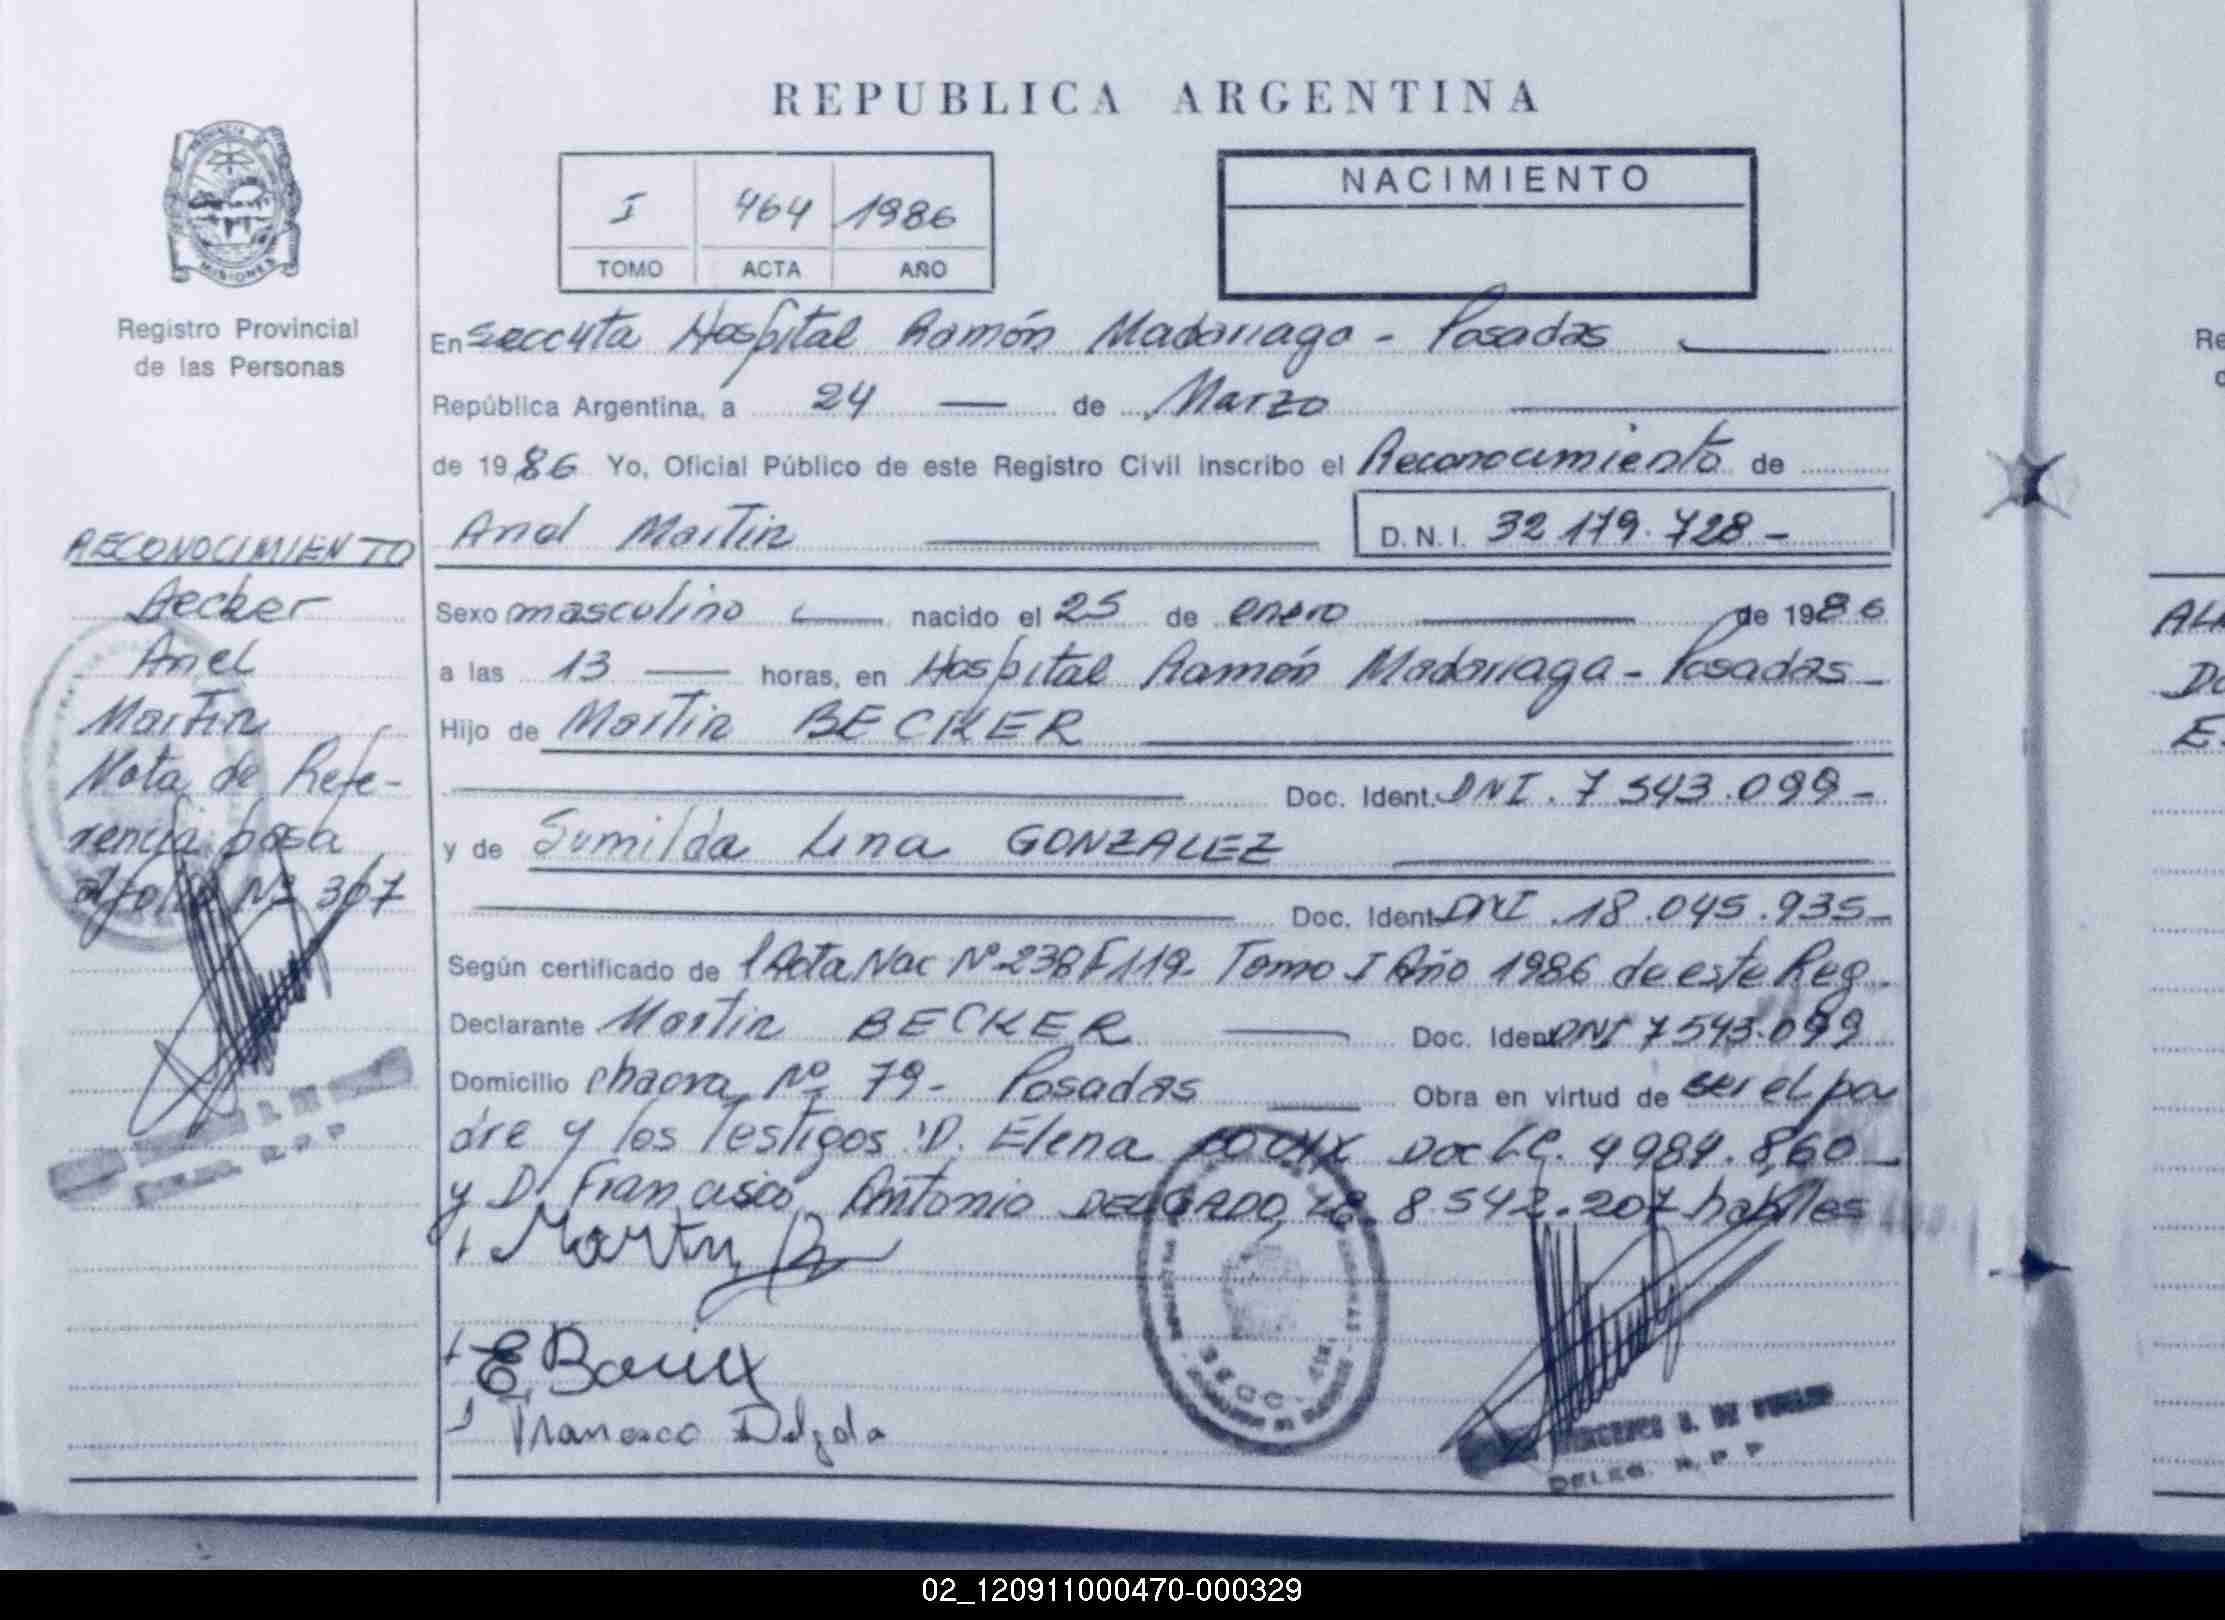 REPUBLICA ARGENTINA
PROVINCIA
MISIONES
Registro Provincial
de las Personas
I 464 1986
TOMO ACTA AÑO
NACIMIENTO
En Secc 4ta Hospital Ramón Madariaga - Posadas
República Argentina, a 24 de Marzo
de 1986 Yo, Oficial Público de este Registro Civil inscribo el Reconocimiento de
Ariel Martin D.N.I. 32 179.728 -
Sexo masculino nacido el 25 de enero de 1986
a las 13 horas, en Hospital Ramón Madariaga - Posadas -
Hijo de Martin BECKER
Doc. Ident. DNI. 7 543.099 -
y de Sumilda Lina GONZALEZ
Doc. Ident. DNI. 18.045.935 -
Según certificado de Acta Nac Nº 238 F 119 Tomo I Año 1986 de este Reg.
Declarante Martin BECKER Doc. Ident DNI 7 543.099
Domicilio chacra Nº 79 - Posadas Obra en virtud de ser el pa
dre y los Testigos D. Elena Doc LC. 4 984.860 -
y D. Francisco Antonio DELGADO, 8.542.207 habiles
Martin B
E. Bariux
Francisco Delgado
DELEG. R. P. P
RECONOCIMIENTO
Becker
Ariel
Martin
Nota de Refe-
rencia pasa
al folio Nº 307
Re
AL
Do
E
02_120911000470-000329